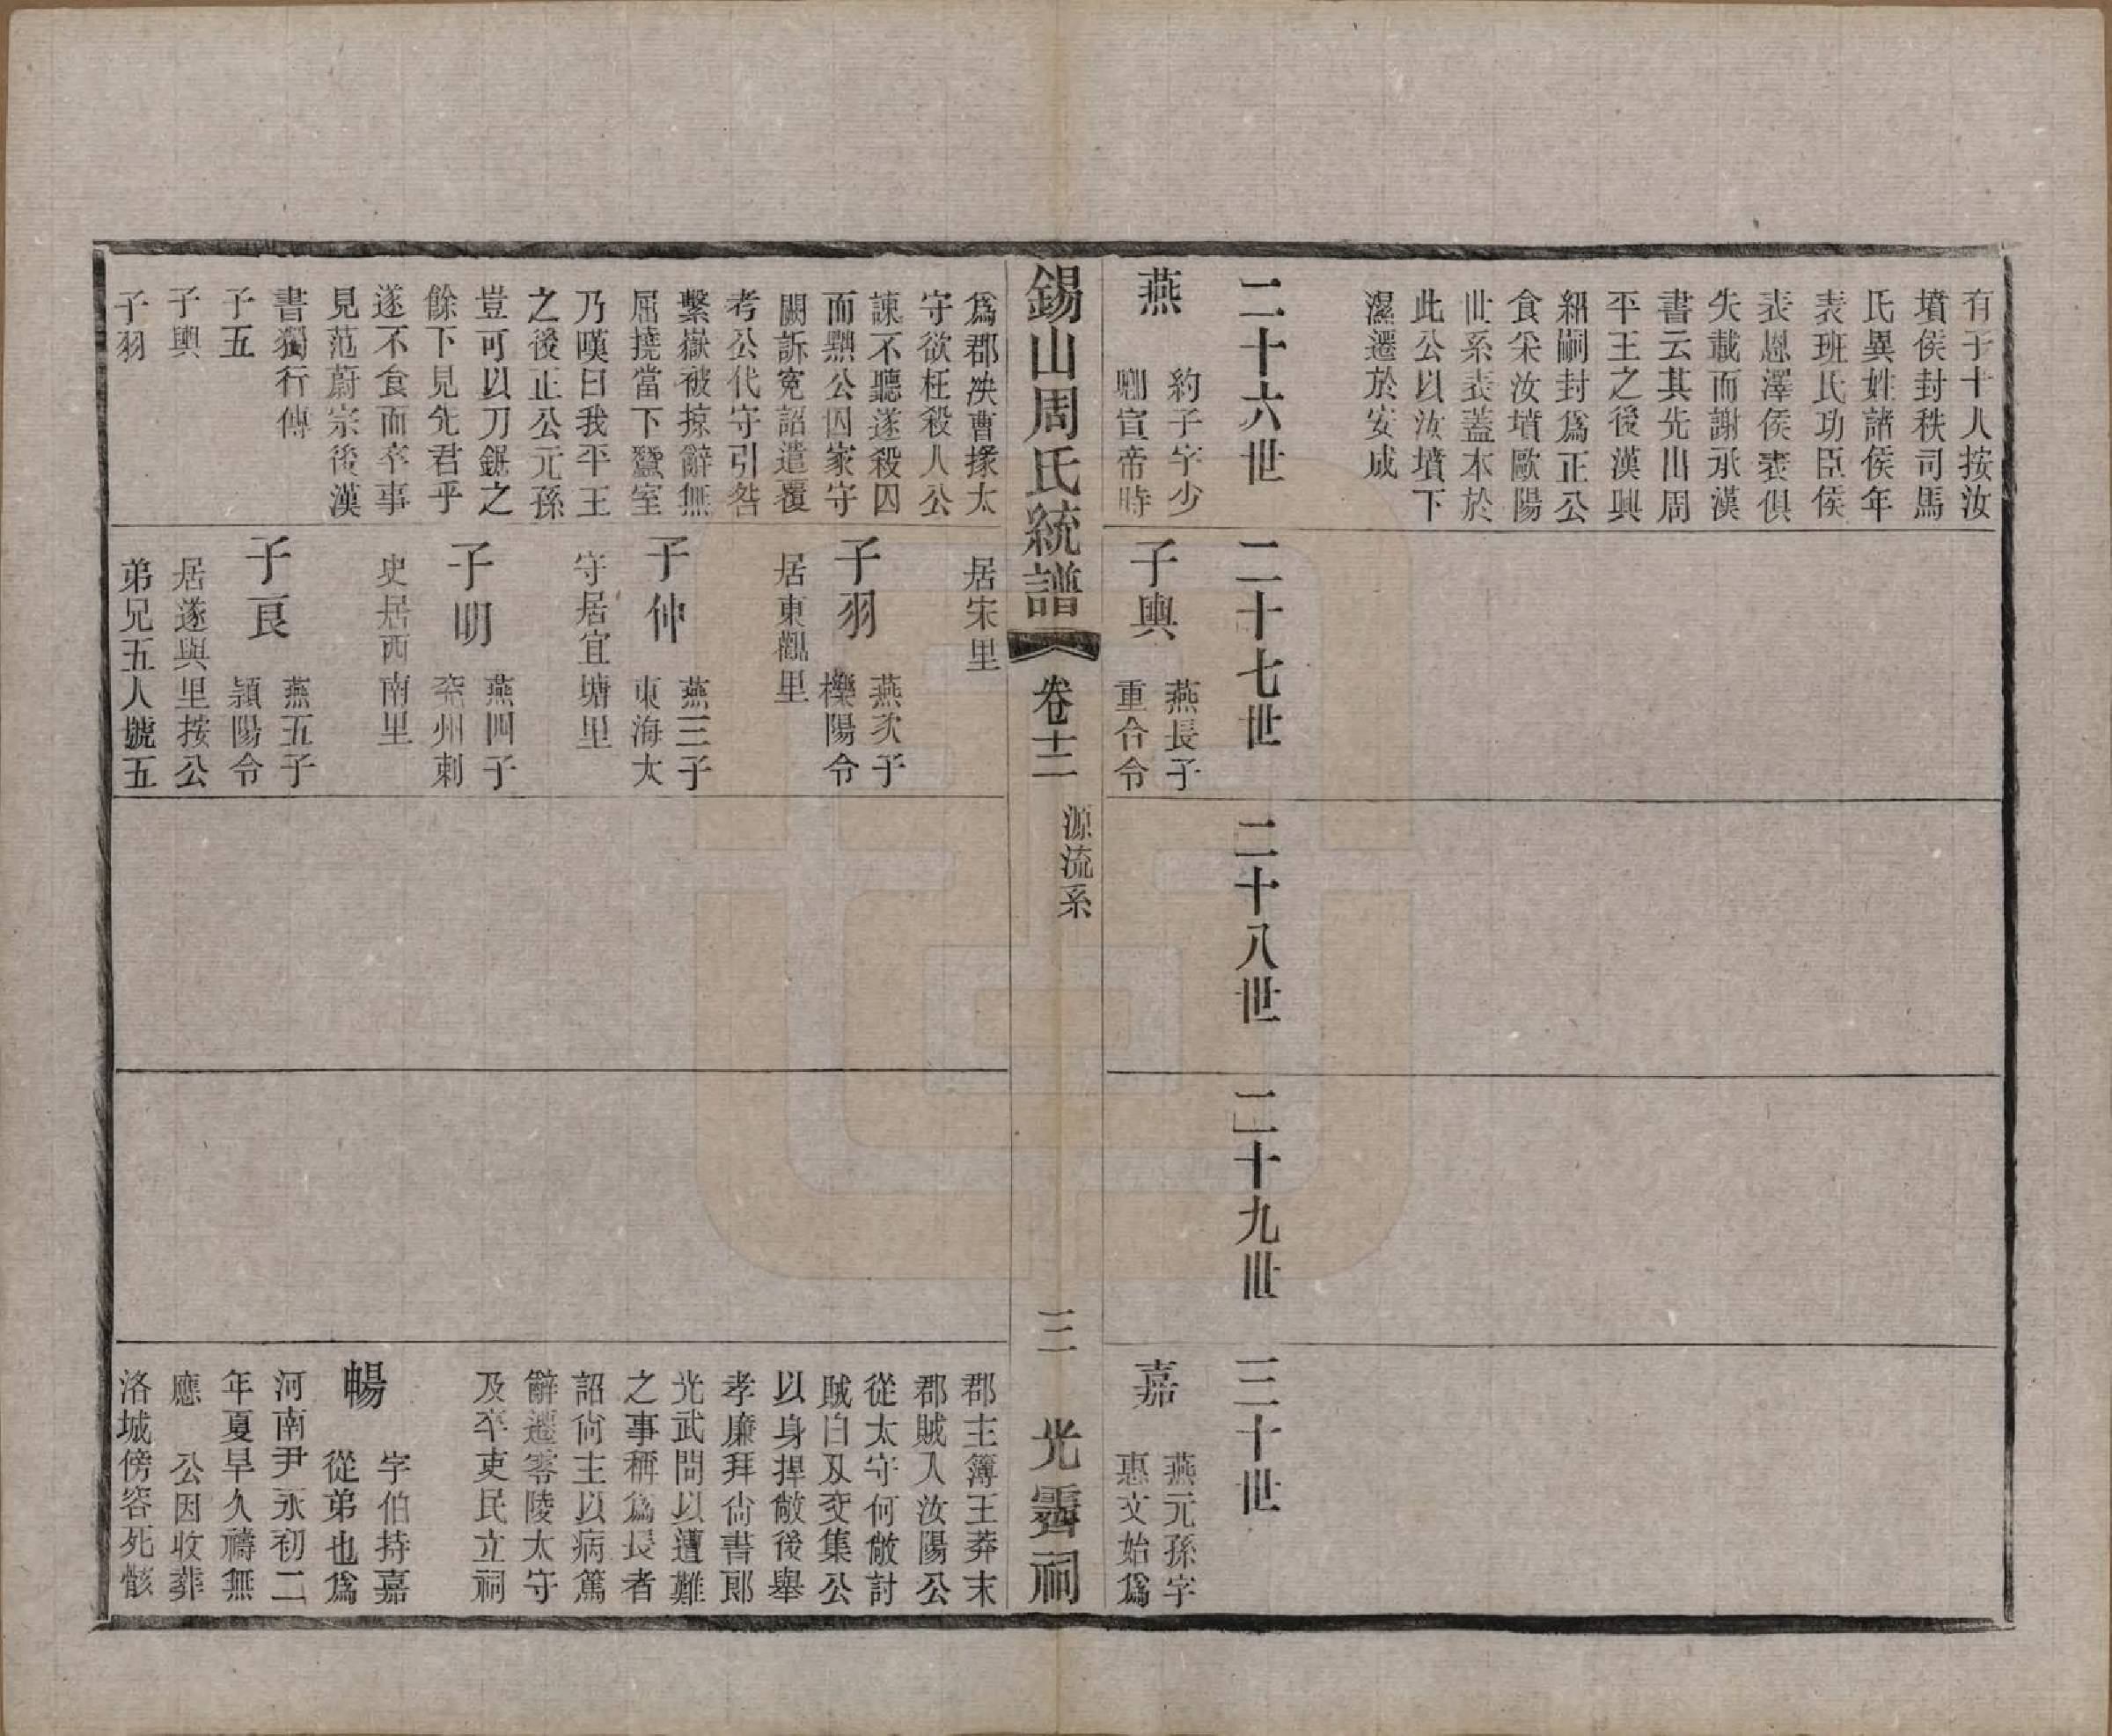 有子十人按汝
墳侯封秩司馬
氏異姓諸侯年
表班氏功臣侯
表恩澤侯表俱
失載而謝承漢
書云其先出周
平王之後漢興
紹嗣封爲正公
食采汝墳歐陽
世系表蓋本於
此公以汝墳下
濕遷於安成
二十六世
二十七世
二十八世
二十九世
三十世
燕
約子字少
卿宣帝時
子輿
燕長子
重合令
嘉
燕元孫字
惠文始爲
錫山周氏統譜
卷十二
源流系
三
光霽祠
爲郡決曹掾太
守欲枉殺人公
諫不聽遂殺囚
而黜公囚家守
闕訴寃詔遣覆
考公代守引咎
繫嶽被掠辭無
屈撓當下蠶室
乃嘆曰我平王
之後正公元孫
豈可以刀鋸之
餘下見先君乎
遂不食而卒事
見范蔚宗後漢
書獨行傳
子五
子輿
子羽
居宋里
子羽
燕次子
櫟陽令
居東觀里
子仲
燕三子
東海太
守居宜塘里
子明
燕四子
兖州刺
史居西南里
子良
燕五子
潁陽令
居遂與里按公
弟兄五人號五
郡主簿王莽末
郡賊入汝陽公
從太守何敞討
賊白刄交集公
以身捍敞後舉
孝廉拜尚書郎
光武問以遭難
之事稱爲長者
詔尚主以病篤
辭遷零陵太守
及卒吏民立祠
暢
字伯持嘉
從弟也爲
河南尹永初二
年夏旱久禱無
應 公因收葬
洛城傍客死骸